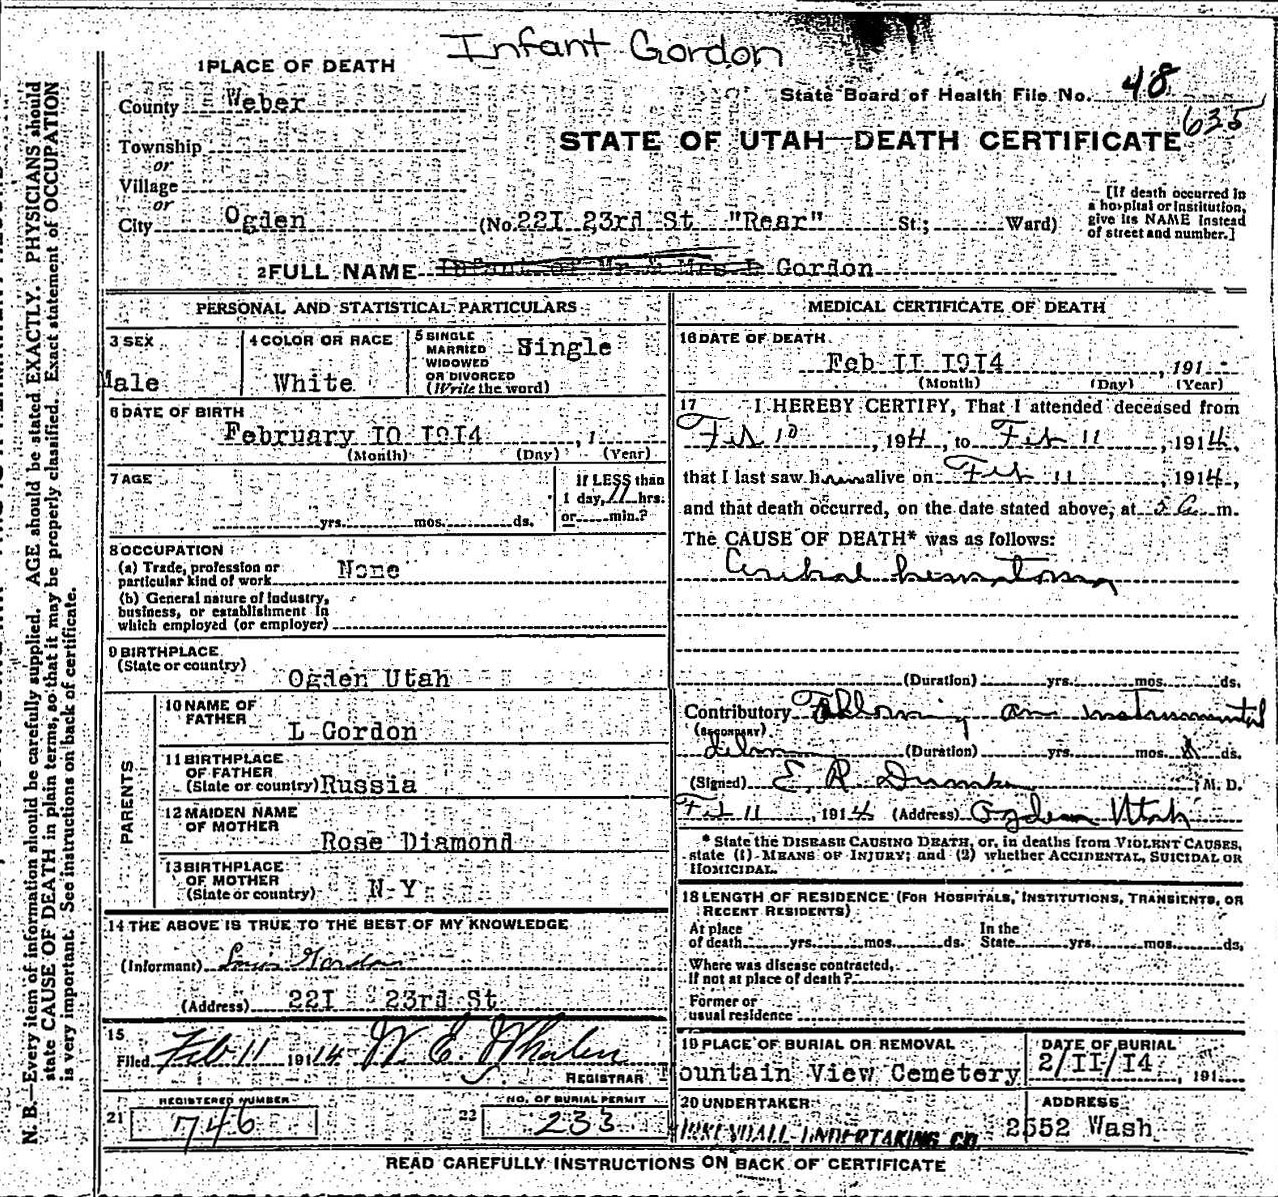 Infant Gordon
1 PLACE OF DEATH
County Weber
State Board of Health File No. 48
635
STATE OF UTAH—DEATH CERTIFICATE
Township
or
Village
or
City Ogden (No. 22I 23rd St "Rear" St.; Ward)
[If death occurred in
a hospital or institution,
give its NAME instead
of street and number.]
2 FULL NAME Infant of Mr & Mrs L Gordon
PERSONAL AND STATISTICAL PARTICULARS
3 SEX
Male
4 COLOR OR RACE
White
5 SINGLE
MARRIED
WIDOWED
OR DIVORCED
(Write the word)
Single
6 DATE OF BIRTH
February IO I9I4, 1
(Month) (Day) (Year)
7 AGE
yrs. mos. ds.
If LESS than
1 day, 11 hrs.
or min.?
8 OCCUPATION
(a) Trade, profession or
particular kind of work None
(b) General nature of industry,
business, or establishment in
which employed (or employer)
9 BIRTHPLACE
(State or country)
Ogden Utah
PARENTS
10 NAME OF
FATHER
L Gordon
11 BIRTHPLACE
OF FATHER
(State or country) Russia
12 MAIDEN NAME
OF MOTHER
Rose Diamond
13 BIRTHPLACE
OF MOTHER
(State or country) N-Y
14 THE ABOVE IS TRUE TO THE BEST OF MY KNOWLEDGE
(Informant) Louis Gordon
(Address) 22I 23rd St
15
Filed Feb 11 191 14 W. E. Whalen
REGISTRAR
21 REGISTERED NUMBER
746
22 NO. OF BURIAL PERMIT
233
MEDICAL CERTIFICATE OF DEATH
16 DATE OF DEATH
Feb II I9I4, 191
(Month) (Day) (Year)
17 I HEREBY CERTIFY, That I attended deceased from
Feb 10, 1914, to Feb 11, 1914,
that I last saw him alive on Feb 11, 1914,
and that death occurred, on the date stated above, at 5 a. m.
The CAUSE OF DEATH* was as follows:
Ceribral hematoma
(Duration) yrs. mos. ds.
Contributory Following an instrumental
(SECONDARY)
(Duration) yrs. mos. ds.
(Signed) E. R. M. D.
Feb 11, 1914 (Address) Ogden Utah
* State the DISEASE CAUSING DEATH, or, in deaths from VIOLENT CAUSES,
state (1) MEANS OF INJURY; and (2) whether ACCIDENTAL, SUICIDAL OR
HOMICIDAL.
18 LENGTH OF RESIDENCE (FOR HOSPITALS, INSTITUTIONS, TRANSIENTS, OR
RECENT RESIDENTS)
At place In the
of death yrs. mos. ds. State yrs. mos. ds,
Where was disease contracted,
If not at place of death?
Former or
usual residence
19 PLACE OF BURIAL OR REMOVAL
ountain View Cemetery
DATE OF BURIAL
2/II/I4, 191
20 UNDERTAKER
KIRKENDALL UNDERTAKING CO
ADDRESS
2552 Wash
READ CAREFULLY INSTRUCTIONS ON BACK OF CERTIFICATE
N. B.—Every item of information should be carefully supplied. AGE should be stated EXACTLY. PHYSICIANS should
state CAUSE OF DEATH in plain terms, so that it may be properly classified. Exact statement of OCCUPATION
is very important. See instructions on back of certificate.